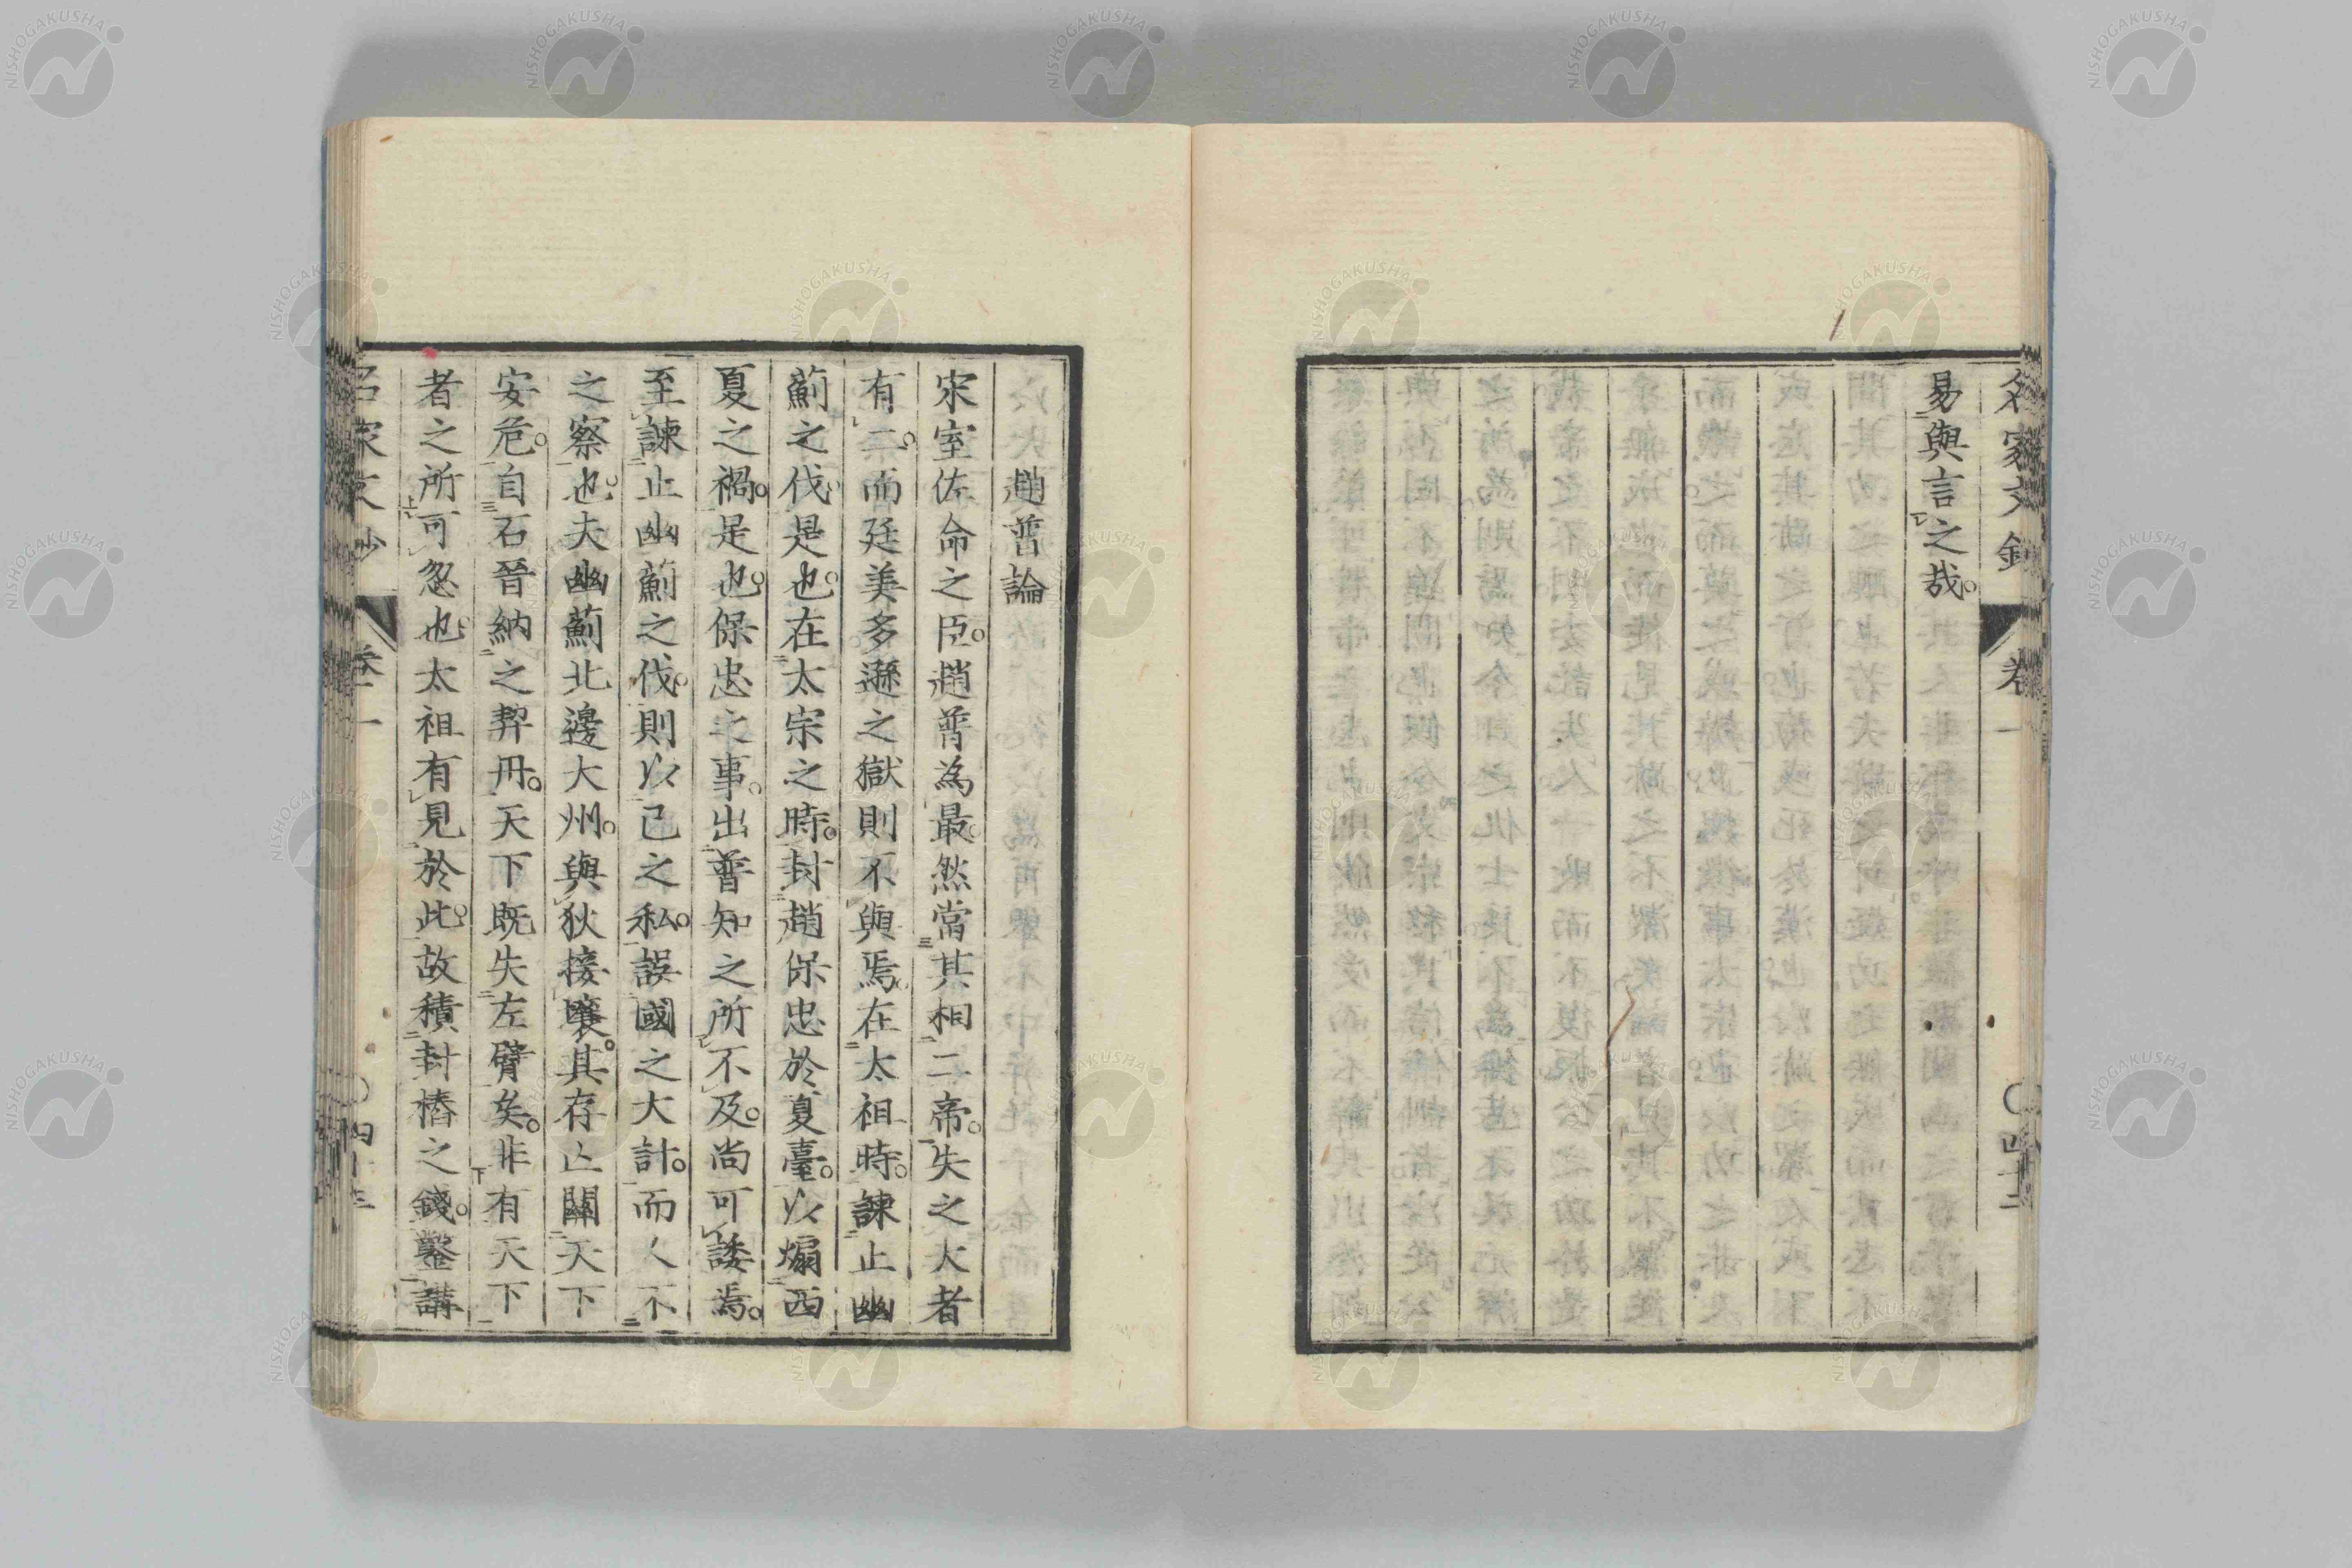 名家文鈔 卷一 〇四十二
易與言之哉。
趙普論
宋室佐命之臣。趙普為最。然當其相二帝。失之大者
有二。而廷美多遜之獄則不與焉。在太祖時。諫止幽
薊之伐。是也。在太宗之時。封趙保忠於夏臺。以煽西
夏之禍。是也。保忠之事。出普知之所不及。尚可諉焉。
至諫止幽薊之伐。則以己之私。誤國之大計。而人不
之察也。夫幽薊北邊大州。與狄接壤。其存亡關天下
安危。自石晉納之契丹。天下既失左臂矣。非有天下
者之所可忽也。太祖有見於此。故積封樁之錢。鑿講
名家文鈔 卷一 〇四十三
NISHOGAKUSHA